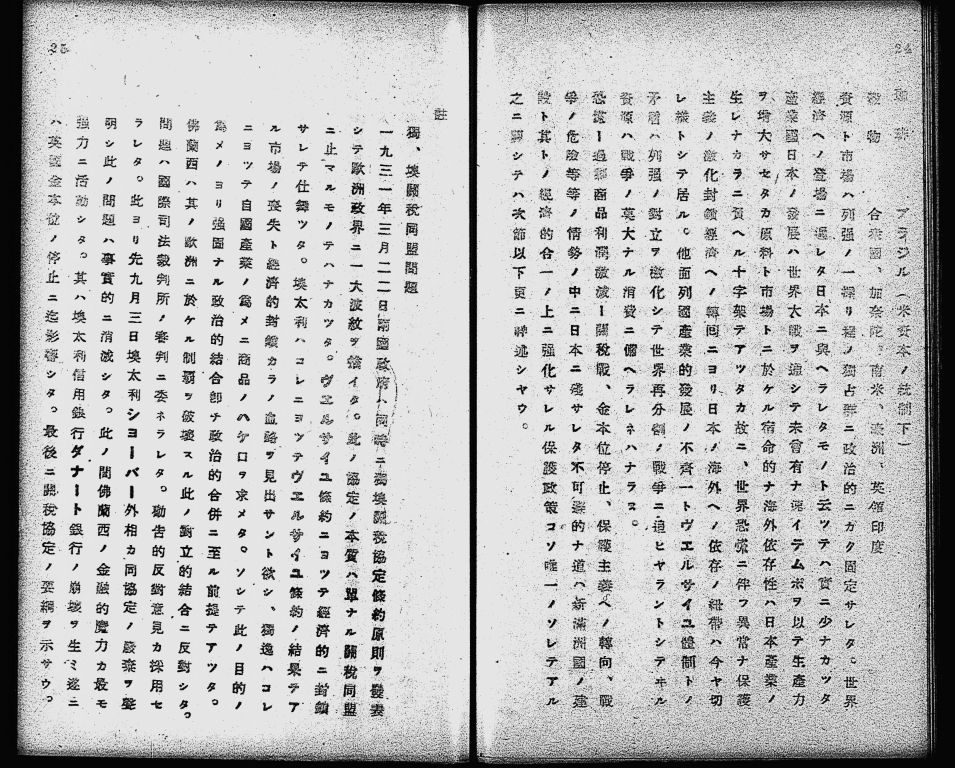 24
ブラジル(米資本ノ統制下)
穀物 合衆國、加奈陀、南米、濠洲、英領印度
資源ト市場ハ列强ノ一握リ程ノ獨占群ニ政治的ニカク固定サレタ。世界
經濟ヘノ登場ニ遲レタ日本ニ與ヘラレタモノト云ツテハ實ニ少ナカツタ
產業國日本ノ發展ハ世界大戰ヲ通シテ未曾有ナ速イテムボヲ以テ生產力
ヲ增大サセタカ原料ト市場トニ於ケル宿命的ナ海外依存性ハ日本產業ノ
生レナカラニ負ヘル十字架テアツタカ故ニ、世界恐慌ニ伴フ異常ナ保護
主義ノ激化封鎖經濟ヘノ轉回ニヨリ日本ノ海外ヘノ依存ノ紐帶ハ今ヤ切
レ樣トシテ居ル。他面列國產業的發展ノ不齊一トヴエルサイユ體制トノ
矛盾ハ列强ノ對立ヲ激化シテ世界再分割ノ戰爭ニ迫ヒヤラントシテヰル
資源ハ戰爭ノ莫大ナル消費ニ備ヘラレネハナラヌ。
恐慌ー過剩商品利潤激減ー關稅戰、金本位停止、保護主義ヘノ轉向、戰
爭ノ危險等等ノ情勢ノ中ニ日本ニ殘サレタ不可避的ナ道ハ新滿洲國ノ建
設ト其トノ經濟的合一ノ上ニ强化サレル保護政策コソ唯一ノソレテアル
之ニ關シテハ次節以下更ニ詳述シヤウ。
25
註
獨、墺關稅同盟問題
一九三一年三月二二日兩國政府ハ同時ニ獨墺關稅協定條約原則ヲ發表
シテ歐洲政界ニ一大波紋ヲ描イタ。此ノ協定ノ本質ハ單ナル關稅同盟
ニ止マルモノテハナカツタ。ヴエルサイユ條約ニヨツテ經濟的ニ封鎖
サレテ仕舞ツタ。墺太利ハコレニヨツテヴエルサイユ條約ノ結果テア
ル市場ノ喪失ト經濟的封鎖カラノ血路ヲ見出サント欲シ、獨逸ハコレ
ニヨツテ自國產業ノ爲メニ商品ノハケ口ヲ求メタ。ソシテ此ノ目的ノ
爲メノヨリ强固ナル政治的結合卽チ政治的合併ニ至ル前提テアツタ。
佛蘭西ハ其ノ歐洲ニ於ケル制覇ヲ破壞スル此ノ對立的結合ニ反對シタ。
問題ハ國際司法裁判所ノ審判ニ委ネラレタ。勸告的反對意見カ採用セ
ラレタ。此ヨリ先九月三日墺太利シヨーバー外相カ同協定ノ廢棄ヲ聲
明シ此ノ問題ハ事實的ニ消滅シタ。此ノ間佛蘭西ノ金融的魔力カ最モ
强力ニ活動シタ。其ハ墺太利信用銀行ダナート銀行ノ崩壞ヲ生ミ遂ニ
ハ英國金本位ノ停止ニ迄影響シタ。最後ニ關稅協定ノ要綱ヲ示サウ。